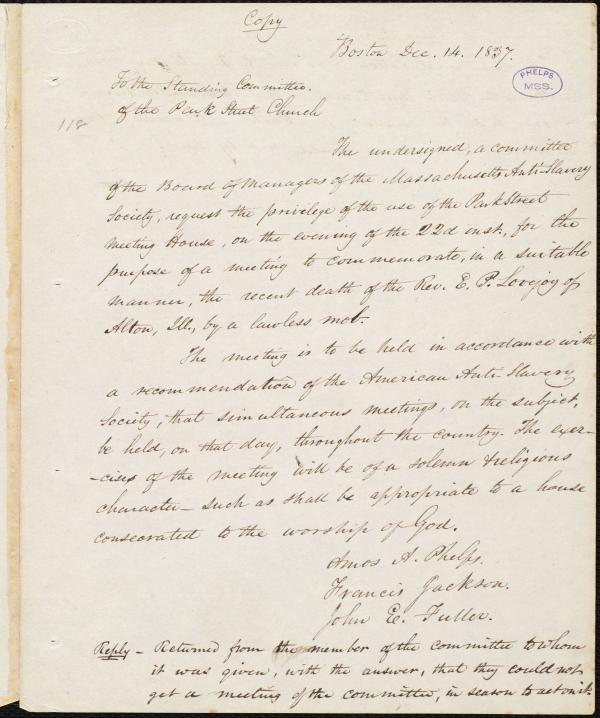 Copy
Boston Dec. 14. 1837.
PHELPS
MSS.
To the Standing Committee.
of the Park Street Church
118
The undersigned, a committee
of the Board of Managers of the Massachusetts Anti-Slavery
Society, request the privilege of the use of the Park Street
Meeting House, on the evening of the 22d inst., for the
purpose of a meeting to commemorate, in a suitable
manner, the recent death of the Rev. E. P. Lovejoy of
Alton, Ill., by a lawless mob.
The meeting is to be held in accordance with
a recommendation of the American Anti-Slavery
Society, that simultaneous meetings, on the subject,
be held, on that day, throughout the country. The exer-
-cises of the meeting will be of a solemn & religious
character - such as shall be appropriate to a house
consecrated to the worship of God.
Amos A. Phelps.
Francis Jackson.
John E. Fuller.
Reply - Returned from the member of the committee to whom
it was given, with the answer, that they could not
get a meeting of the committee, in season to act on it.